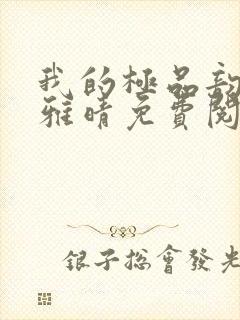 我的極品
雅晴免費閱
銀子總會發光